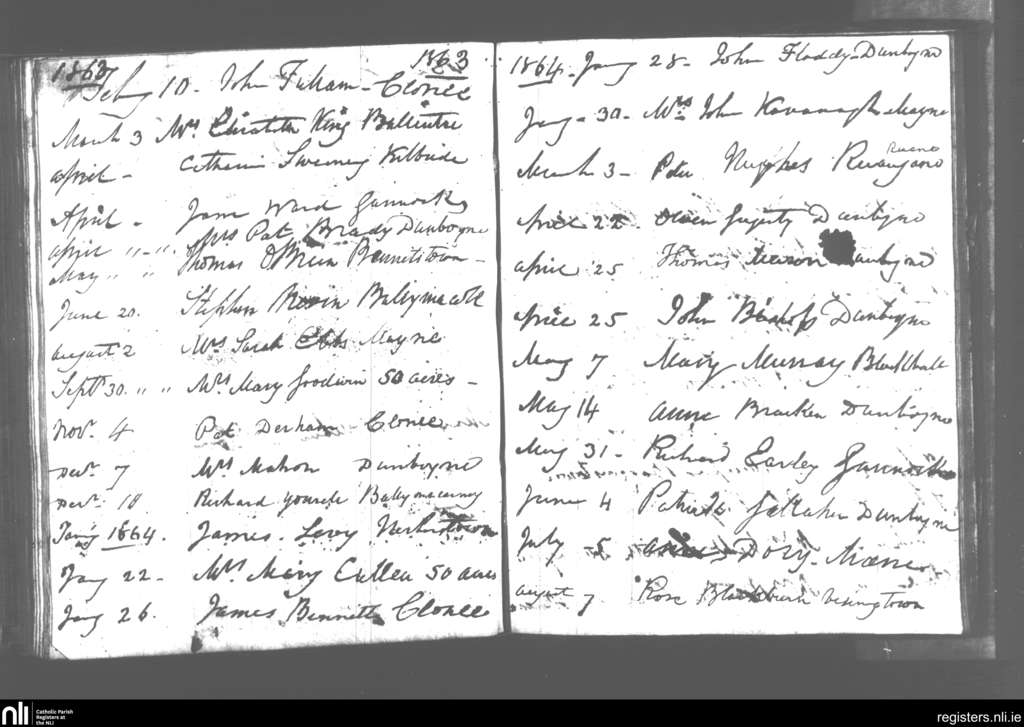 1863 1863
Feby 10 - John Fulham - Clonee
March 3 Mrs King Ballintre
april - Catharin Sweeney Kilbride
April - Jane Ward
april " - " Mrs Pat Brady Dunboyne
May " " Thomas O Brien Bennetstown -
June 20. Stephen Ballymacoll
august 2 Mrs Sarah Ebbs Mayne
Sept 30. " " Mrs Mary Goodwin 50 acres -
Novr. 4 Pat Derham Clonee
Decr 7 Mrs Mahon Dunboyne
Decr. 18 Richard Ballymacarney
Jany 1864. James. Levy
Jany 22 - Mrs Mary Cullen 50 acres
Jany 26. James Bennett Clonee
1864 - Jany 28 - John Dunboyne
Jany - 30 - Mrs John Kavanagh Mayne
March 3 - Peter Hughes
april 22 - Owen Dunboyne
april 25 Thomas Dunboyne
april 25 John Bishop Dunboyne
May 7 Mary Murray Blackhall
May 14 anne Bracken Dunboyne
May 31 - Richard Earley
June 4 Patrick Dunboyne
July 5
august 7 Rose Blackburn
nli Catholic Parish
Registers at
the NLI
registers.nli.ie